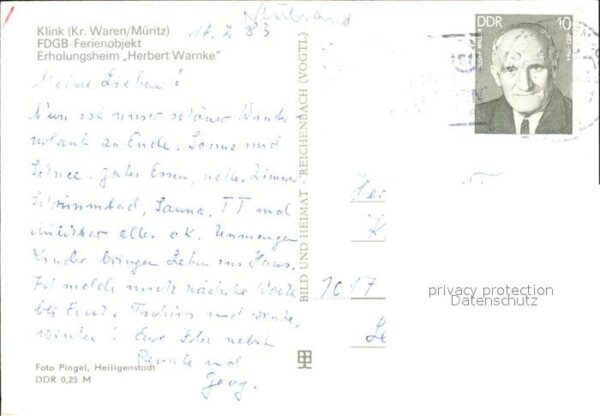 Klink (Kr. Waren/Müritz)
FDGB-Ferienobjekt
Erholungsheim „Herbert Warnke"
83
DDR 10
Meine Lieben!
Nun ist unser schöner Winter-
urlaub zu Ende. Sonne und
Schnee, gutes Essen, nettes Zimmer
Schwimmbad, Sauna, TT und
alles o.k. Unmengen
Kinder bringen Leben ins Haus.
Ich melde mich nächste Woche
bei Euch. Tschüss und winke,
winke! Eure
Renate und
Georg.
BILD UND HEIMAT · REICHENBACH (VOGTL)
1017
privacy protection
Datenschutz
Foto Pingel, Heiligenstadt
DDR 0,25 M